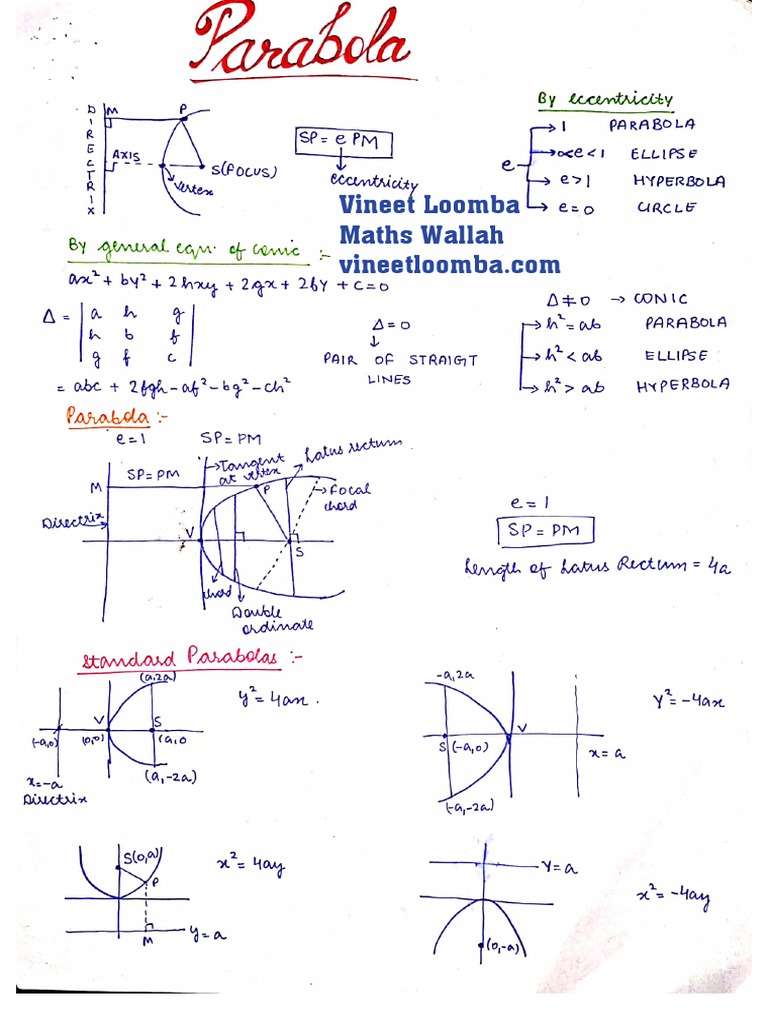 Parabola
DIRECTRIX
M
P
AXIS
S(FOCUS)
Vertex
SP = e PM
eccentricity
By eccentricity
e
1 PARABOLA
0<e<1 ELLIPSE
e>1 HYPERBOLA
e=0 CIRCLE
Vineet Loomba
Maths Wallah
vineetloomba.com
By general eqn. of conic :-
ax² + by² + 2hxy + 2gx + 2fy + c = 0
Δ = | a h g |
| h b f |
| g f c |
= abc + 2fgh - af² - bg² - ch²
Δ = 0
PAIR OF STRAIGT
LINES
Δ ≠ 0 → CONIC
h² = ab PARABOLA
h² < ab ELLIPSE
h² > ab HYPERBOLA
Parabola :-
e = 1 SP = PM
SP = PM
Tangent
at vertex
Latus rectum
M
P
Focal
chord
Directrix
V
S
chord
Double
ordinate
e = 1
SP = PM
Length of Latus Rectum = 4a
Standard Parabolas :-
(a,2a)
y² = 4ax.
V
S
(-a,0)
(0,0)
(a,0
(a,-2a)
x=-a
Directrix
-a,2a
y² = -4ax
V
S (-a,0)
x=a
(-a,-2a)
S(0,a)
x² = 4ay
P
M
y=a
Y=a
x² = -4ay
(0,-a)